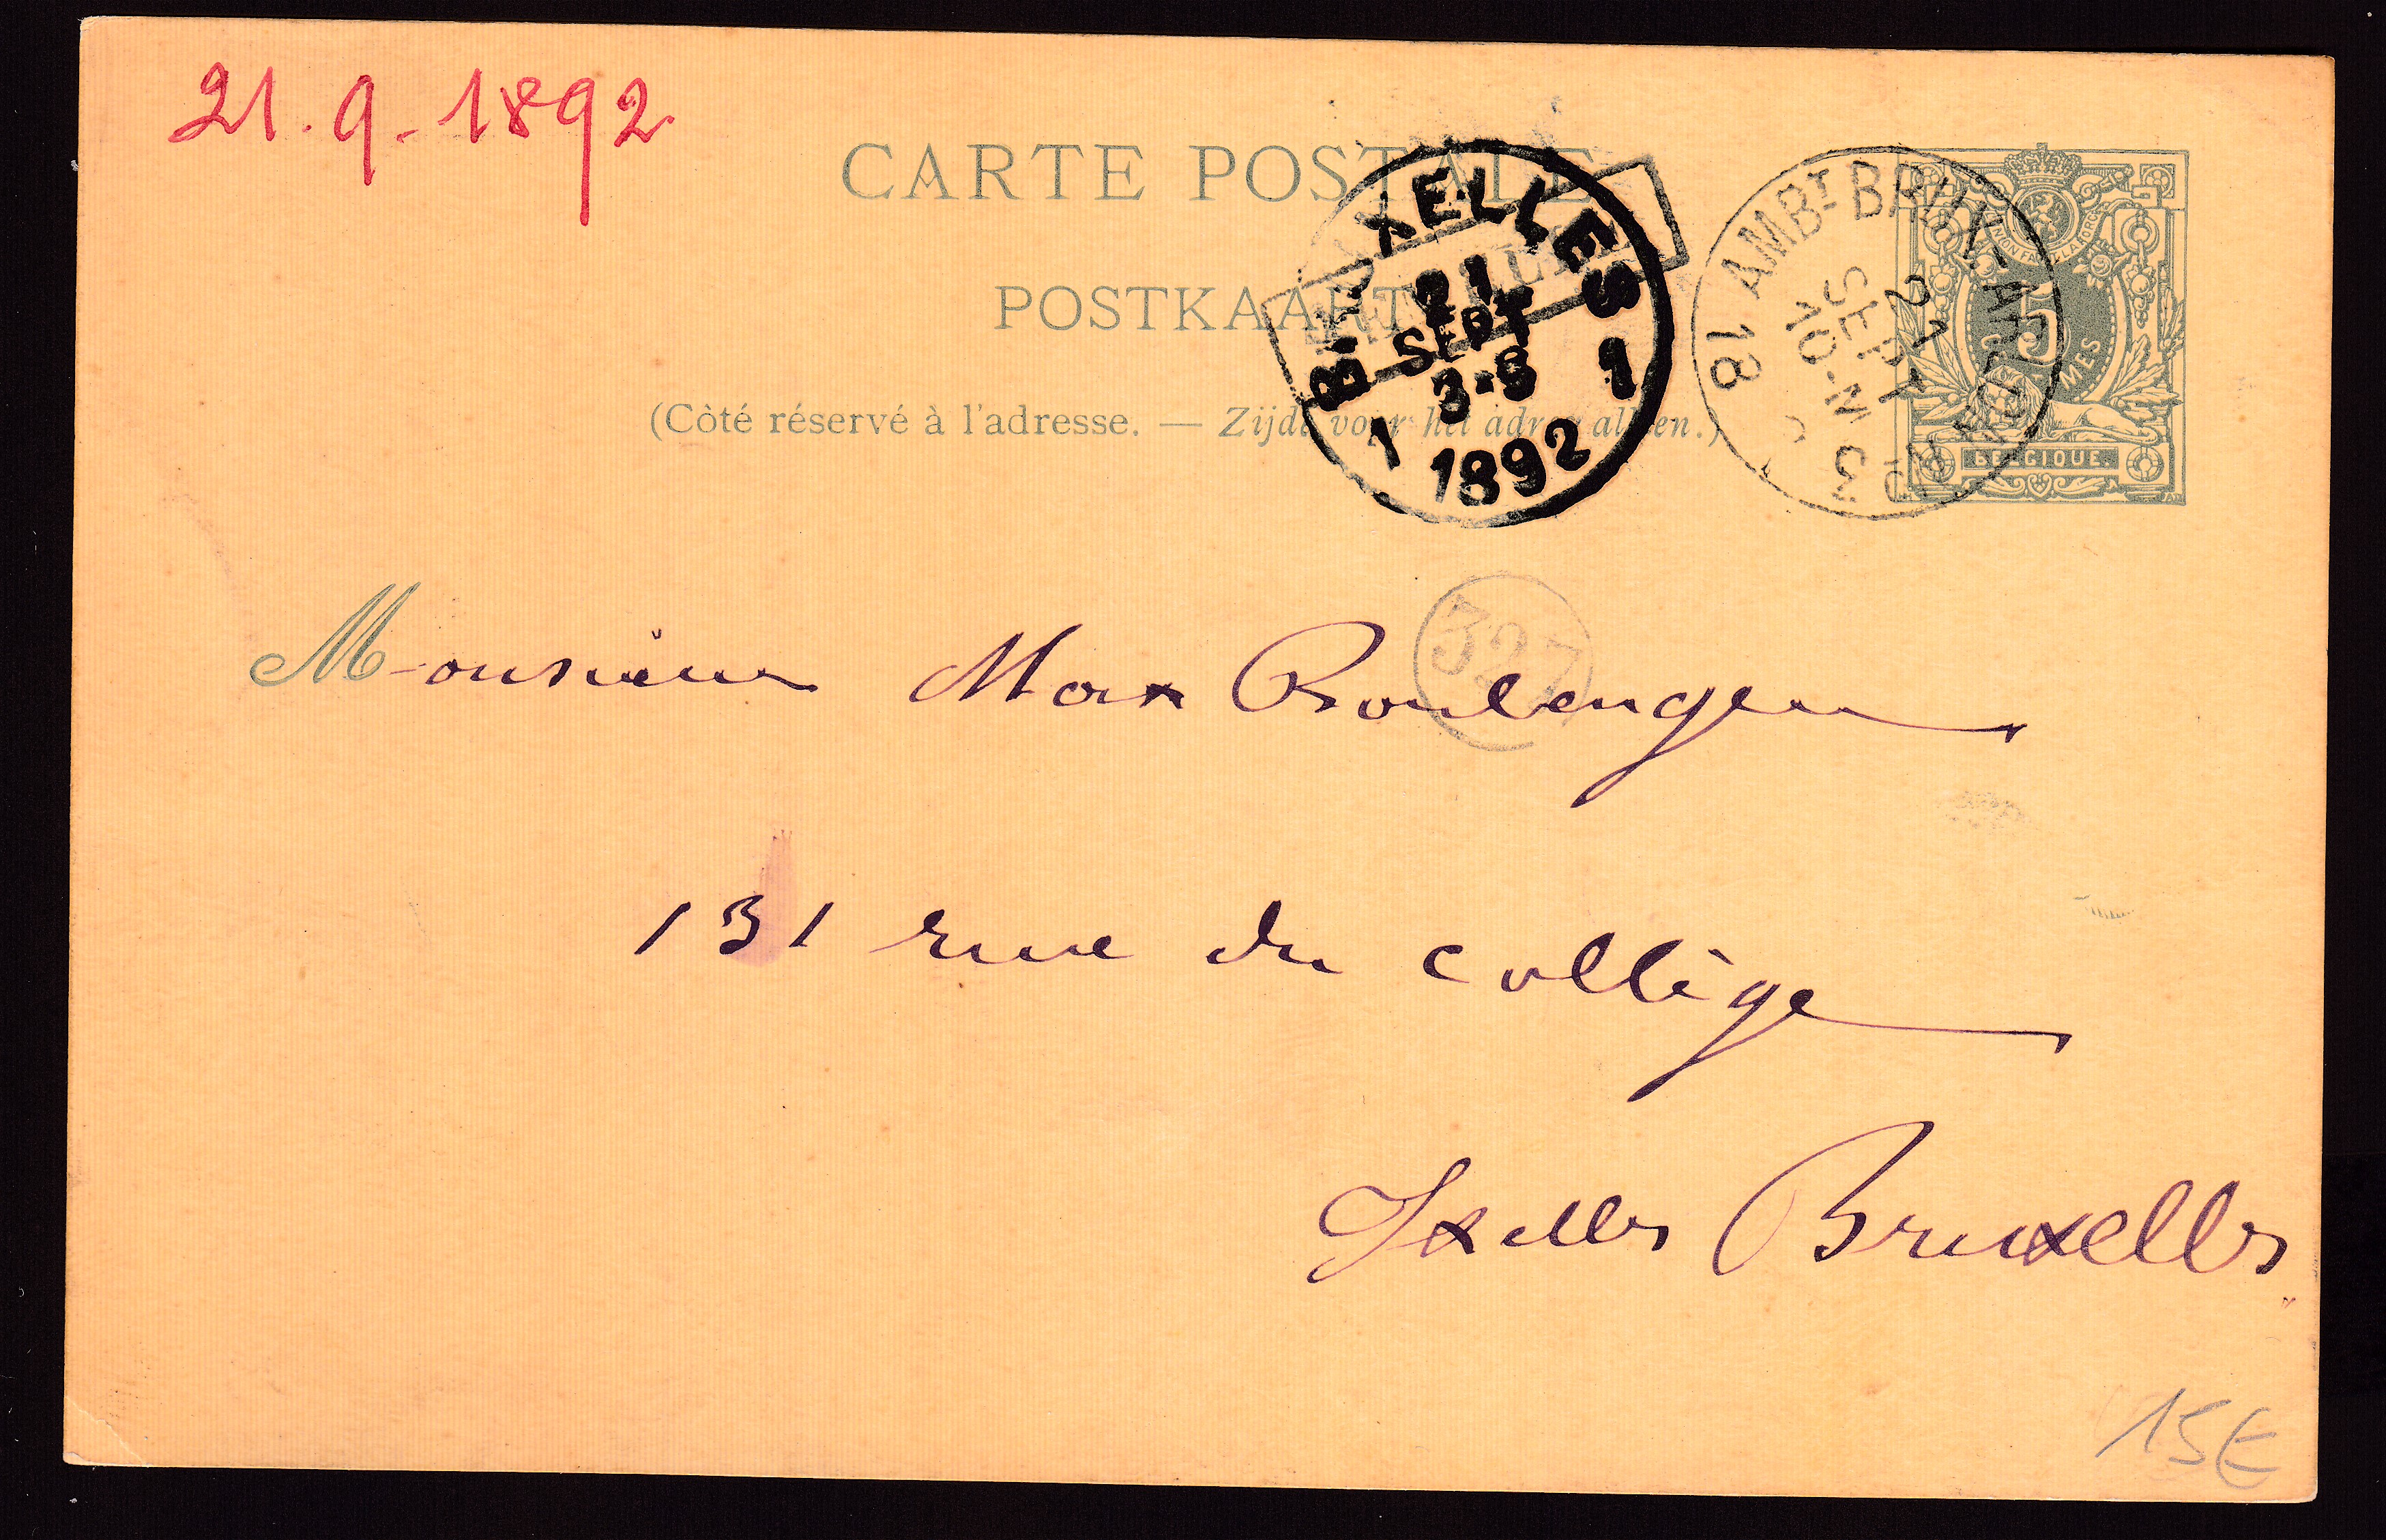 21.9.1892
CARTE POSTALE
POSTKAART
(Côté réservé à l'adresse. — Zijde voor het adres alleen.)
BRUXELLES 1
21
SEPT
3-8
1 1892
AMBT BRUX-ARLON
21
SEPT
10-M
18
5
UNION FAIT LA FORCE
BELGIQUE
327
Monsieur Max Boulenger
131 rue du collège
Ixelles Bruxelles
15€